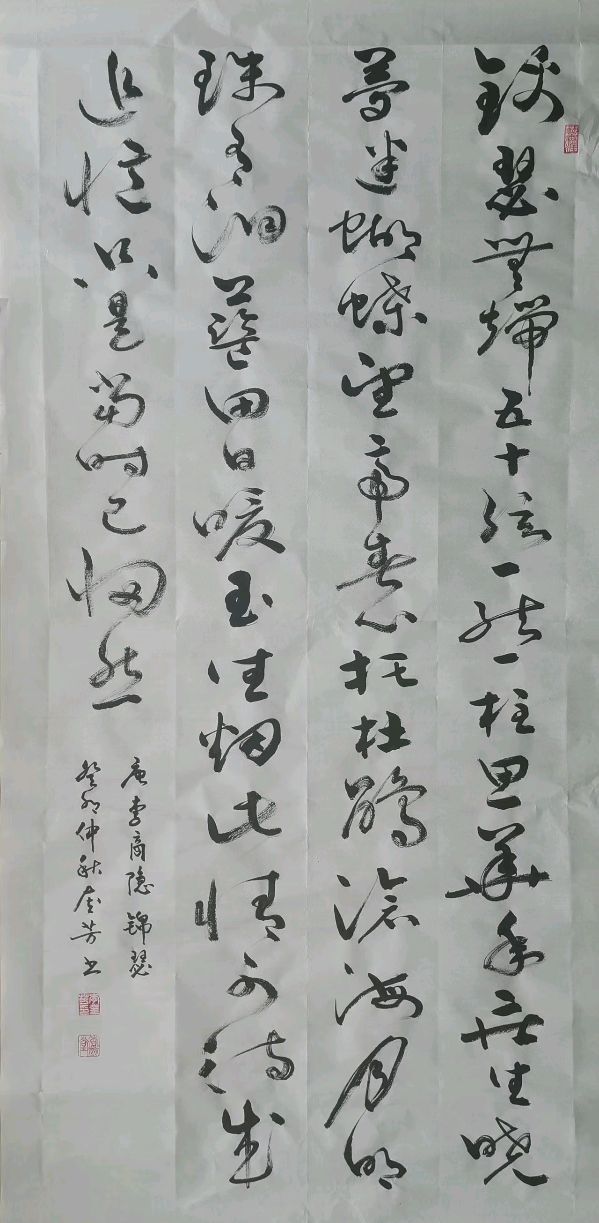 錦瑟無端五十弦一弦一柱思華年庄生曉
夢迷蝴蝶望帝春心托杜鵑滄海月明
珠有泪藍田日暖玉生烟此情可待成
追憶只是當時已惘然
唐李商隐錦瑟
癸卯仲秋芳书